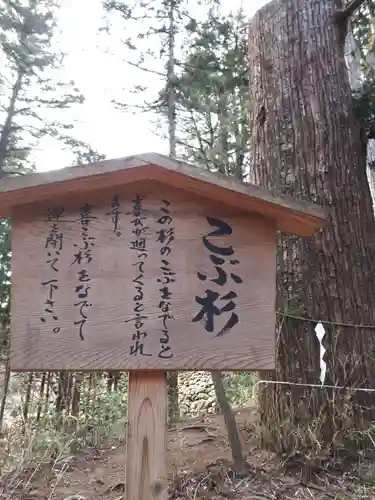 こぶ杉
この杉のこぶをなでると
喜びが廻って来ると言われ
ます。
喜こぶ杉をなでて
運を開いて下さい。